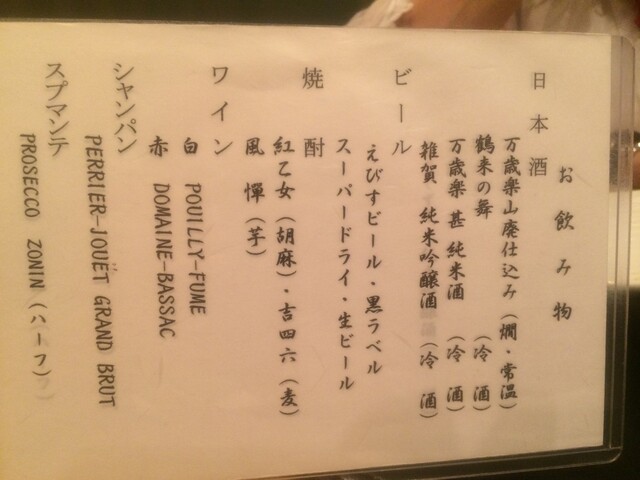 お飲み物
日本酒
万歳楽山廃仕込み（燗・常温）
鶴来の舞（冷酒）
万歳楽 甚 純米酒（冷酒）
雑賀 純米吟醸酒（冷酒）
ビール
えびすビール・黒ラベル
スーパードライ・生ビール
焼酎
紅乙女（胡麻）・吉四六（麦）
風憚（芋）
ワイン
白 POUILLY-FUME
赤 DOMAINE-BASSAC
シャンパン
PERRIER-JOUËT GRAND BRUT
スプマンテ
PROSECCO ZONIN（ハーフ）